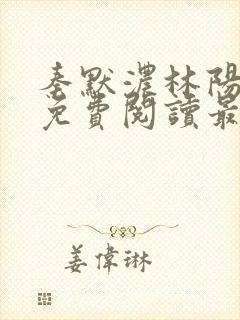 秦默濃林陽
免費閱讀最
姜偉琳